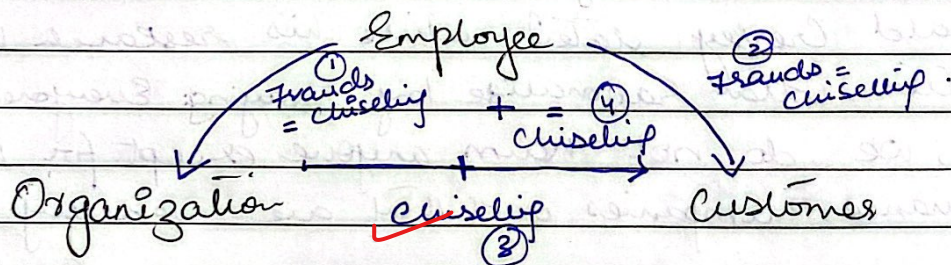 Employee
① Frauds = chiseling
② Frauds = chiseling.
+ = ④ chiseling
Organization chiseling Customer
③